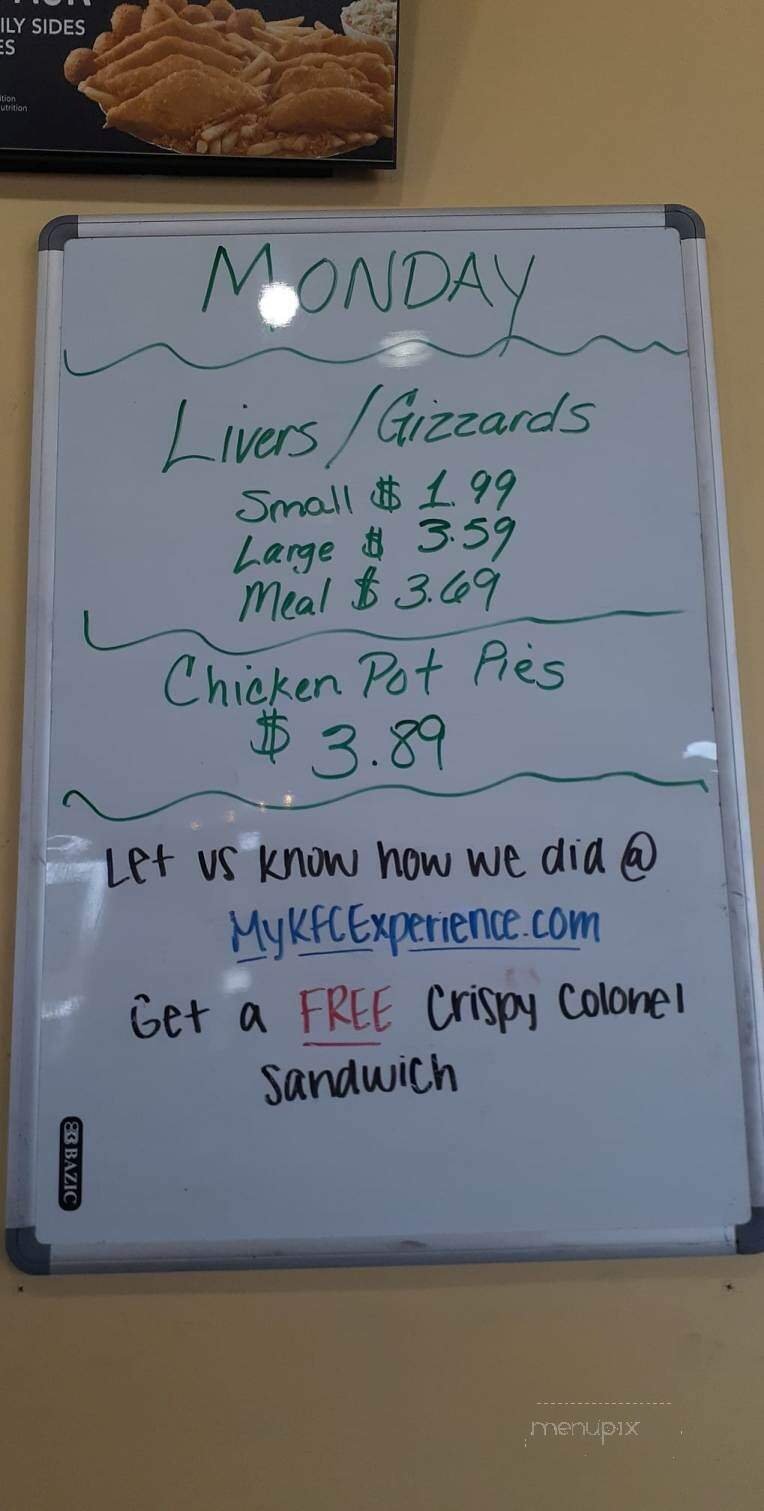 ILY SIDES
ES
utrition
MONDAY
Livers / Gizzards
Small $ 1.99
Large $ 3.59
Meal $ 3.69
Chicken Pot Pies
$ 3.89
Let us know how we did @
MyKFCExperience.com
Get a FREE Crispy Colonel
Sandwich
BAZIC
menupix